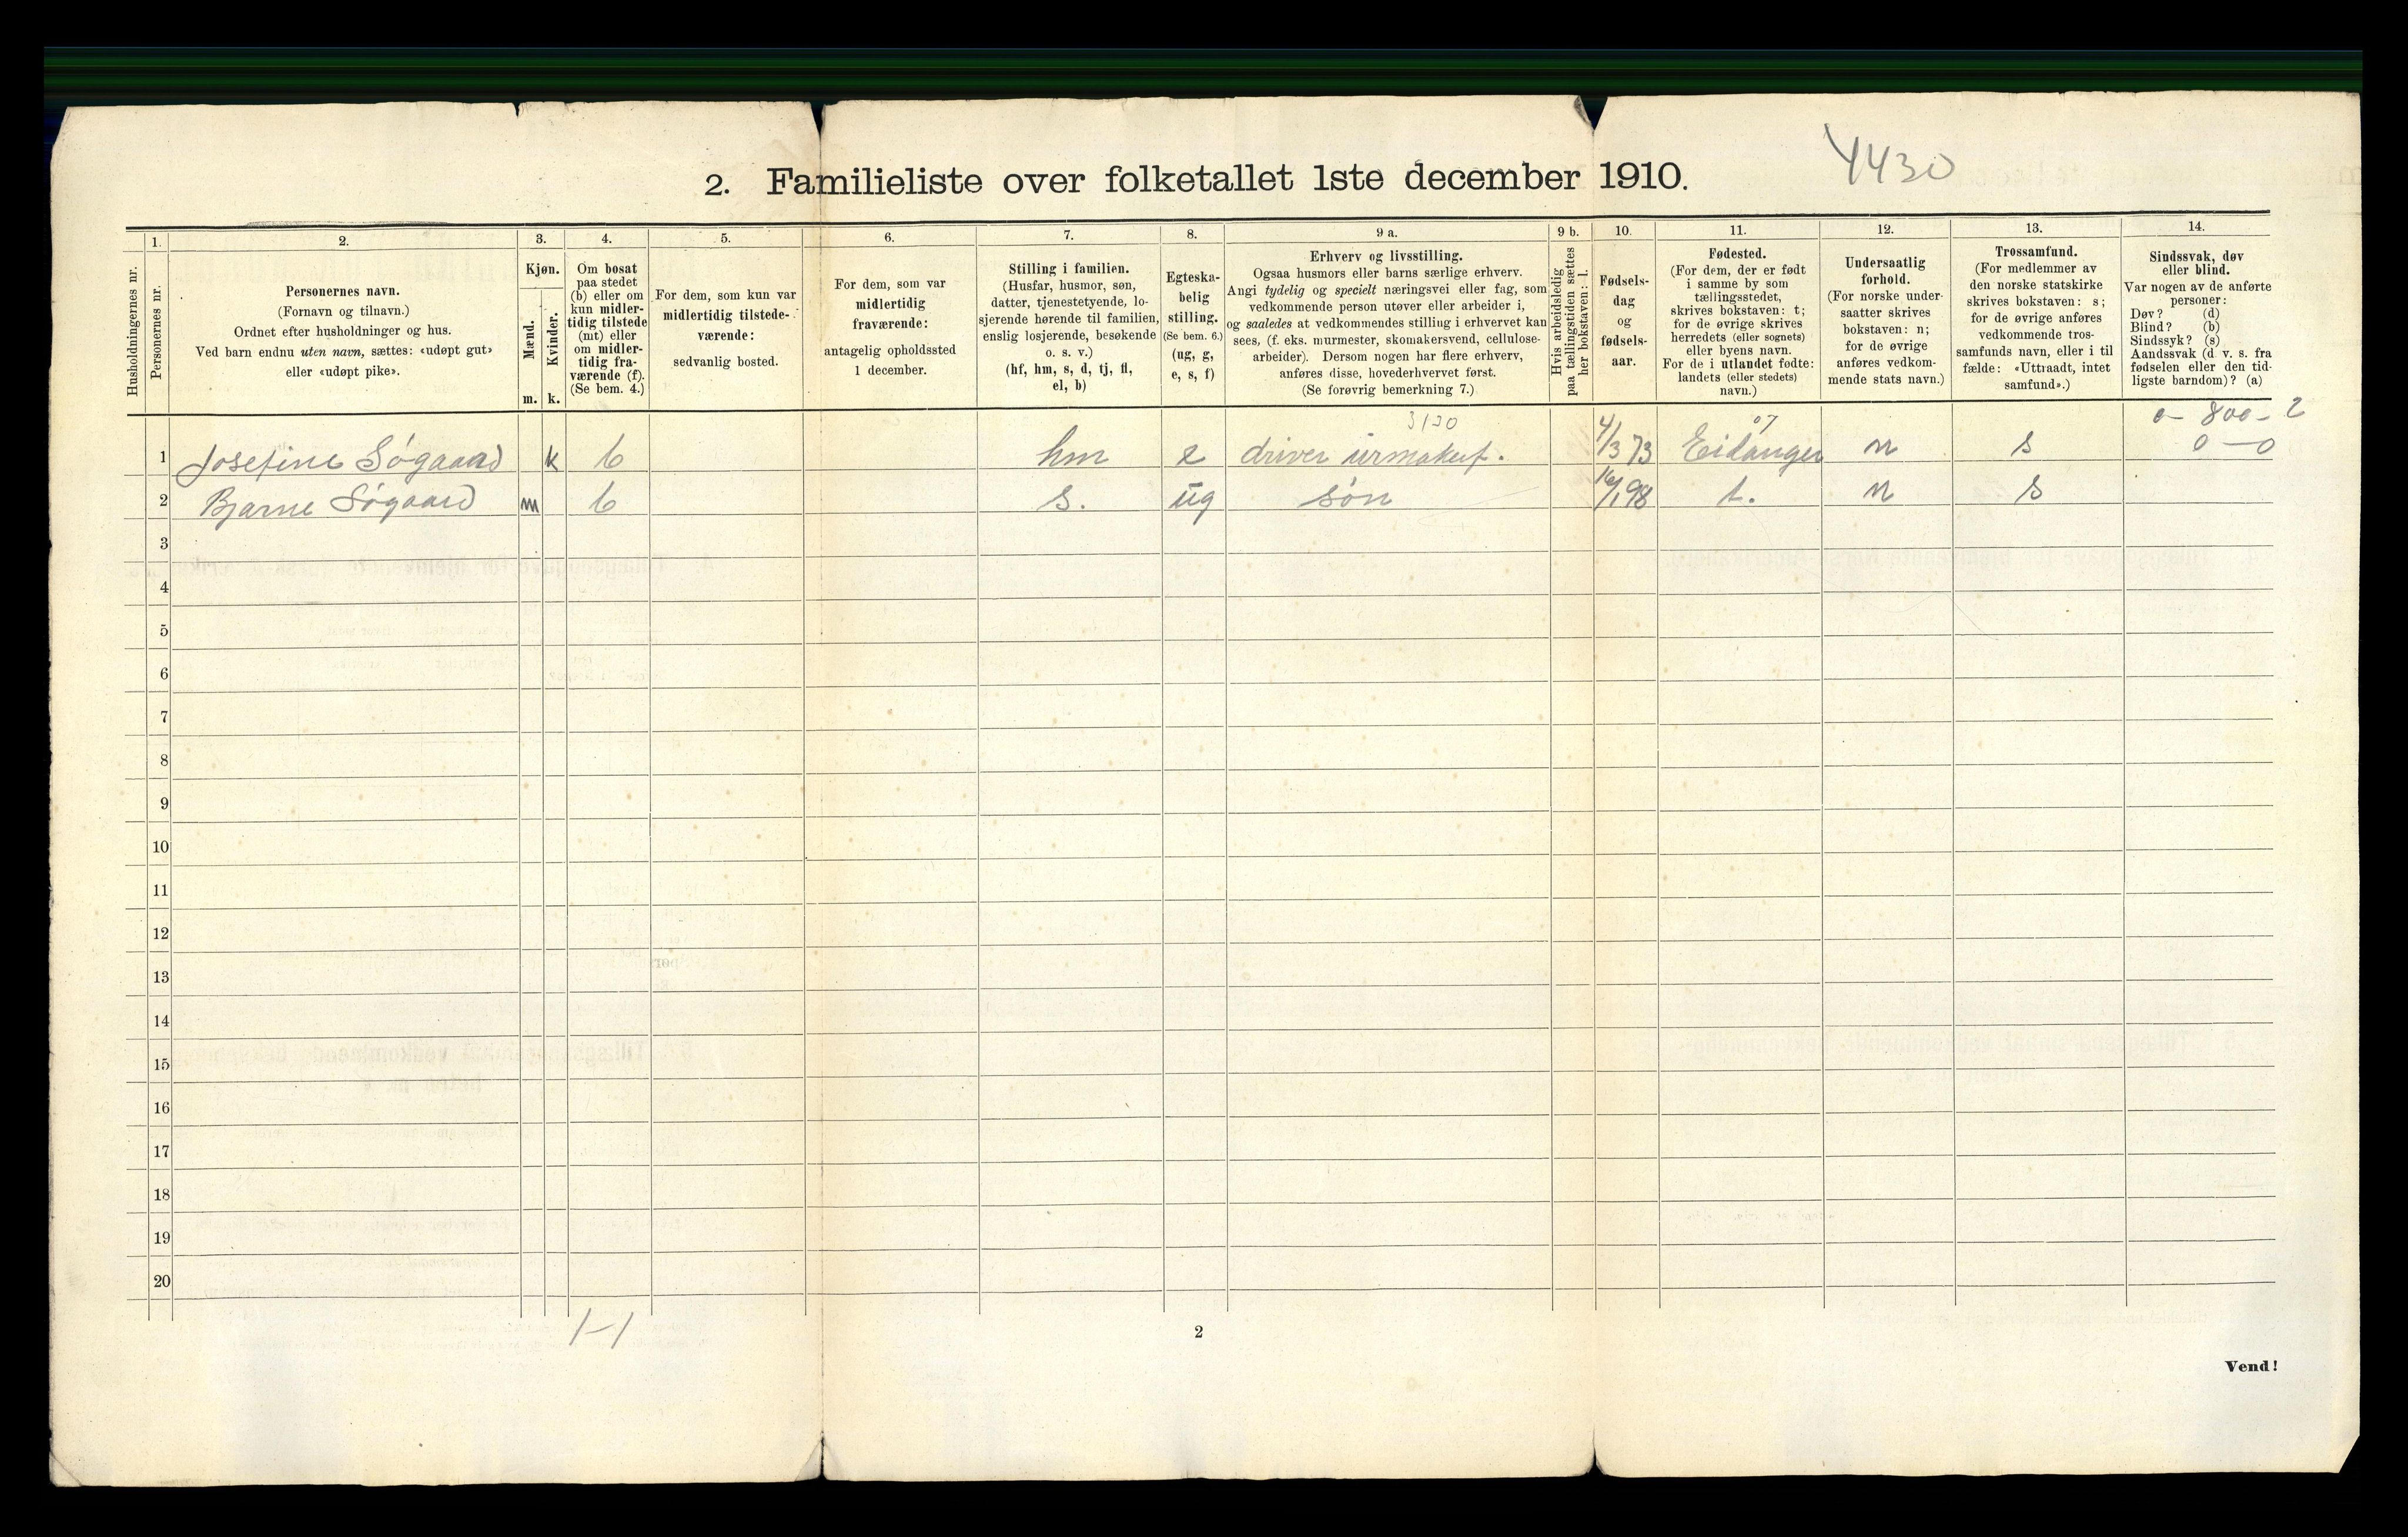 4430
2. Familieliste over folketallet 1ste december 1910.
Husholdningernes nr.
1.
Personernes nr.
2.
Personernes navn.
(Fornavn og tilnavn.)
Ordnet efter husholdninger og hus.
Ved barn endnu uten navn, sættes: «udøpt gut»
eller «udøpt pike».
3.
Kjøn.
Mænd.
Kvinder.
m. k.
4.
Om bosat
paa stedet
(b) eller om
kun midler-
tidig tilstede
(mt) eller
om midler-
tidig fra-
værende (f).
(Se bem. 4.)
5.
For dem, som kun var
midlertidig tilstede-
værende:
sedvanlig bosted.
6.
For dem, som var
midlertidig
fraværende:
antagelig opholdssted
1 december.
7.
Stilling i familien.
(Husfar, husmor, søn,
datter, tjenestetyende, lo-
sjerende hørende til familien,
enslig losjerende, besøkende
o. s. v.)
(hf, hm, s, d, tj, fl,
el, b)
8.
Egteska-
belig
stilling.
(Se bem. 6.)
(ug, g,
e, s, f)
9 a.
Erhverv og livsstilling.
Ogsaa husmors eller barns særlige erhverv.
Angi tydelig og specielt næringsvei eller fag, som
vedkommende person utøver eller arbeider i,
og saaledes at vedkommendes stilling i erhvervet kan
sees, (f. eks. murmester, skomakersvend, cellulose-
arbeider). Dersom nogen har flere erhverv,
anføres disse, hovederhvervet først.
(Se forøvrig bemerkning 7.)
9 b.
Hvis arbeidsledig
paa tællingstiden sættes
her bokstaven: l.
10.
Fødsels-
dag
og
fødsels-
aar.
11.
Fødested.
(For dem, der er født
i samme by som
tællingsstedet,
skrives bokstaven: t;
for de øvrige skrives
herredets (eller sognets)
eller byens navn.
For de i utlandet fødte:
landets (eller stedets)
navn.)
12.
Undersaatlig
forhold.
(For norske under-
saatter skrives
bokstaven: n;
for de øvrige
anføres vedkom-
mende stats navn.)
13.
Trossamfund.
(For medlemmer av
den norske statskirke
skrives bokstaven: s;
for de øvrige anføres
vedkommende tros-
samfunds navn, eller i til
fælde: «Uttraadt, intet
samfund».)
14.
Sindssvak, døv
eller blind.
Var nogen av de anførte
personer:
Døv? (d)
Blind? (b)
Sindssyk? (s)
Aandssvak (d v. s. fra
fødselen eller den tid-
ligste barndom)? (a)
07 0 - 800 - 2
1 Josefine Søgaard k b hm e driver urmakerf. 4/3 73 Eidanger n s 0 — 0
2 Bjarne Søgaard m b s. ug søn 16/1 98 t. n s
3
4
5
6
7
8
9
10
11
12
13
14
15
16
17
18
19
20
1-1
2
Vend!